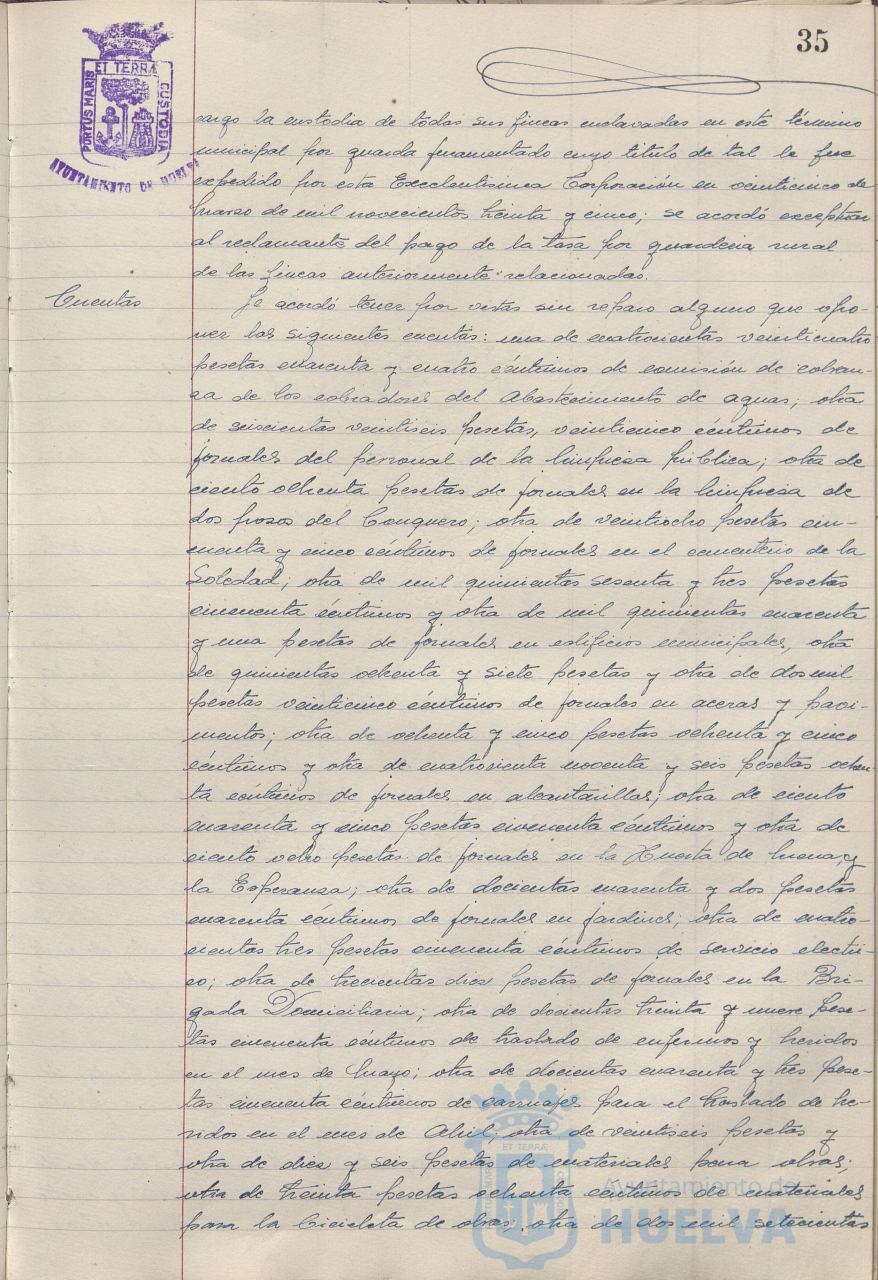 35
PORTUS MARIS ET TERRÆ CUSTODIA
AYUNTAMIENTO DE HUELVA
cargo la custodia de todas sus fincas enclavadas en este término
municipal por guarda juramentado cuyo titulo de tal le fue
expedido por esta Excelentisima Corporación en veinticinco de
Marzo de mil novecientos treinta y cinco; se acordó exceptuar
al reclamante del pago de la tasa por guarderia rural
de las fincas anteriormente relacionadas.
Cuentas
Se acordó tener por vistas sin reparo alguno que opo-
ner las siguientes cuentas: una de cuatrocientas veinticuatro
pesetas cuarenta y cuatro céntimos de comisión de cobran-
za de los cobradores del Abastecimiento de aguas; otra
de seiscientas veintiseis pesetas, veinticinco céntimos de
jornales del personal de la limpieza pública; otra de
ciento ochenta pesetas de jornales en la limpieza de
dos pozos del Conquero; otra de veintiocho pesetas cin-
cuenta y cinco céntimos de jornales en el cementerio de la
Soledad; otra de mil quinientas sesenta y tres pesetas
cincuenta céntimos y otra de mil quinientas cuarenta
y una pesetas de jornales en edificios municipales, otra
de quinientas ochenta y siete pesetas y otra de dos mil
pesetas veinticinco céntimos de jornales en aceras y pavi-
mentos; otra de ochenta y cinco pesetas ochenta y cinco
céntimos y otra de cuatrocienta noventa y seis pesetas ochen
ta céntimos de jornales en alcantarillas; otra de ciento
cuarenta y cinco pesetas cincuenta céntimos y otra de
ciento ocho pesetas de jornales en la Huerta de Mena, y
la Esperanza; otra de docientas cuarenta y dos pesetas
cuarenta céntimos de jornales en jardines; otra de cuatro-
cientas tres pesetas cincuenta céntimos de servicio electri-
co; otra de trecientas diez pesetas de jornales en la Bri-
gada Domiciliaria; otra de docientas treinta y nueve pese-
tas cincuenta céntimos de traslado de enfermos y heridos
en el mes de Mayo; otra de docientas cuarenta y tres pese-
tas cincuenta céntimos de carruajes para el traslado de he-
ridos en el mes de Abril; otra de veintiseis pesetas y
otra de diez y seis pesetas de materiales para obras;
otra de treinta pesetas ochenta céntimos de materiales
para la bicicleta de obras; otra de dos mil setecientas
Ayuntamiento de
HUELVA